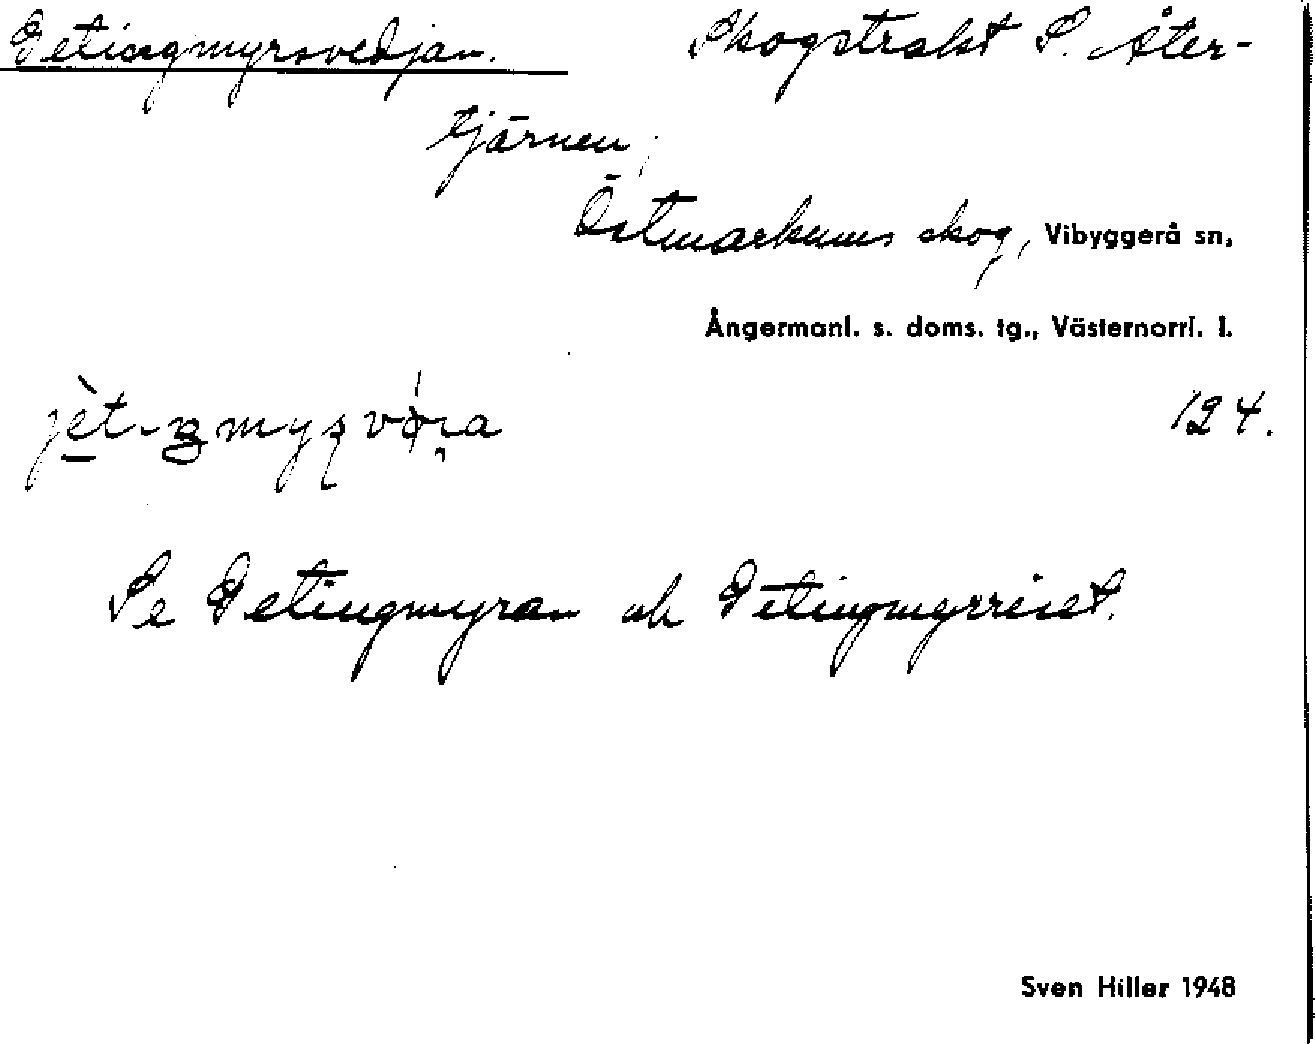 Getingmyrsvedjan. Skogstrakt S. Åter-
tjärnen,
Östmarkums skog, Vibyggerå sn,
Ångermanl. s. doms. tg., Västernorrl. l.
124.
Se Getingmyran och Getingmyrriset.
Sven Hiller 1948